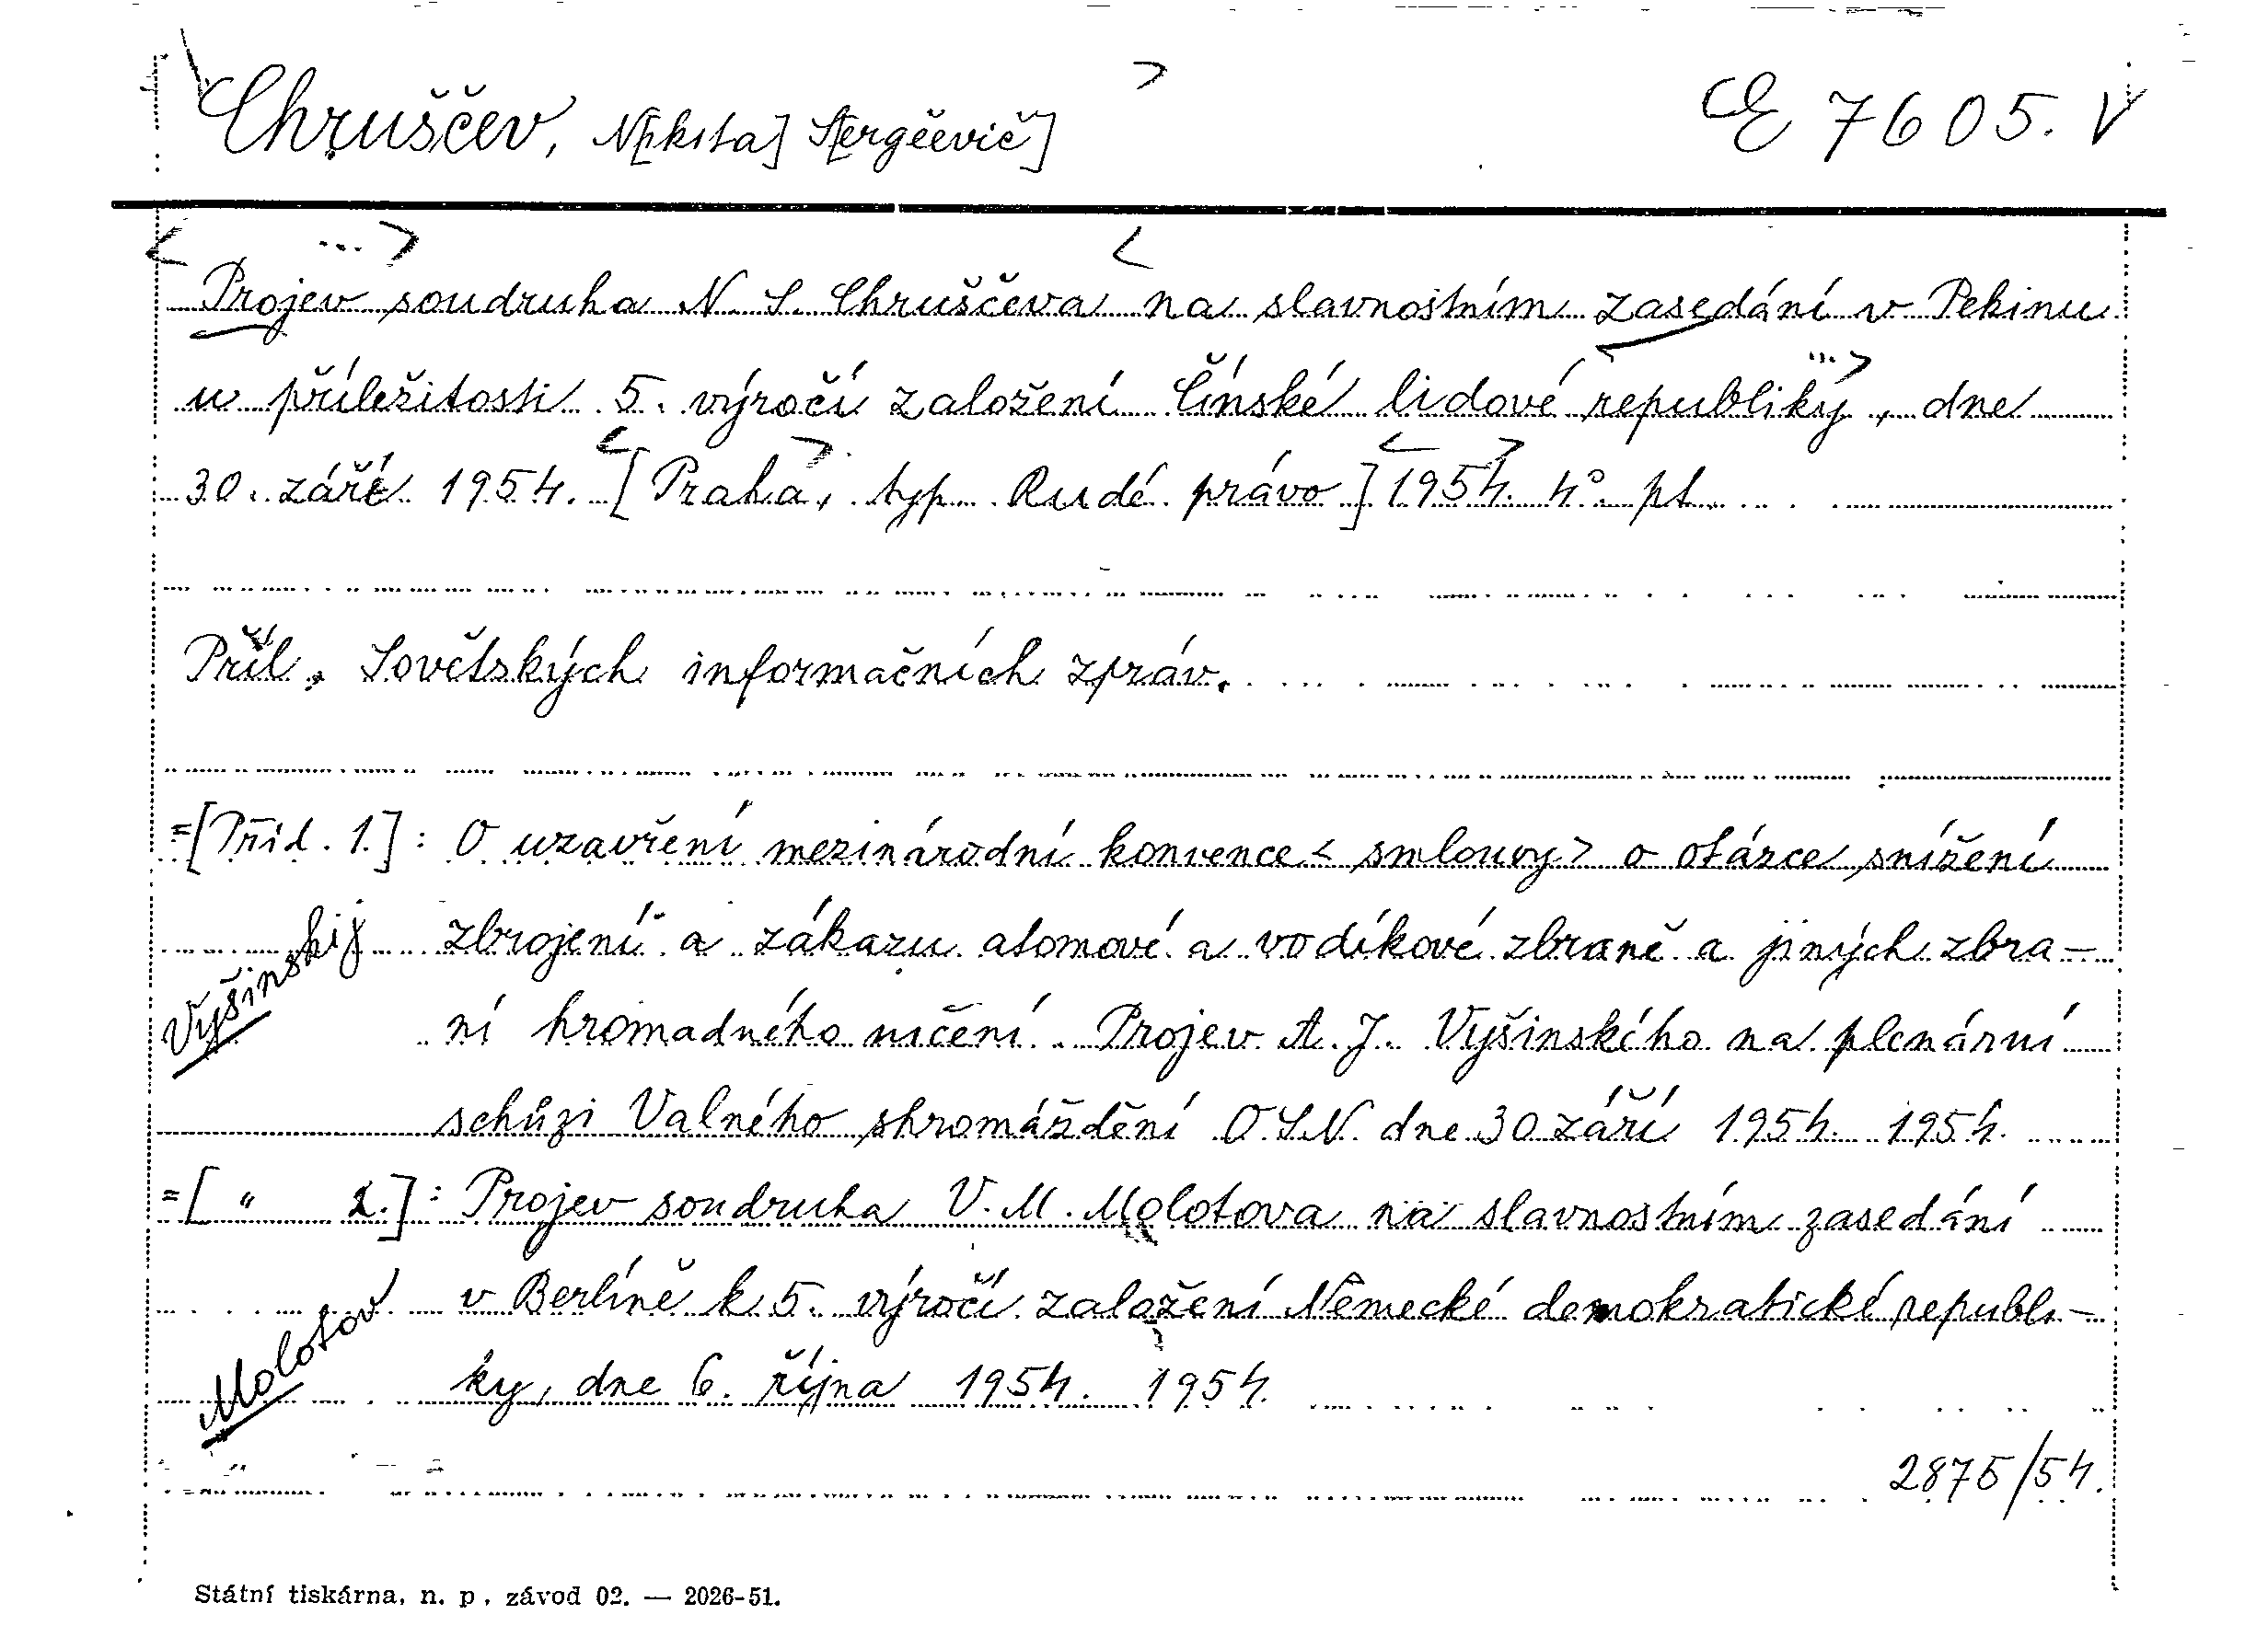 Chruščev, N[ikita] S[ergěevič]
E 7605. V
Projev soudruha N. S. Chruščeva na slavnostním zasedání v Pekinu
u příležitosti 5. výročí založení Čínské lidové republiky, dne
30. září 1954. [Praha, typ. Rudé právo] 1954. 4°. pt.
Příl. Sovětských informačních zpráv.
=[Příd. 1.]: O uzavření mezinárodní konvence < smlouvy> o otázce snížení
zbrojení a zákazu atomové a vodíkové zbraně a jiných zbra-
Vyšinskij
ní hromadného ničení. Projev A. J. Vyšinského na plenární
schůzi Valného shromáždění OSN. dne 30 září 1954. 1954.
=[ " 2.]: Projev soudruha V. M. Molotova na slavnostním zasedání
v Berlíně k 5. výročí založení Německé demokratické republi-
Molotov
ky, dne 6. října 1954. 1954.
2875/54.
Státní tiskárna, n. p., závod 02. — 2026-51.